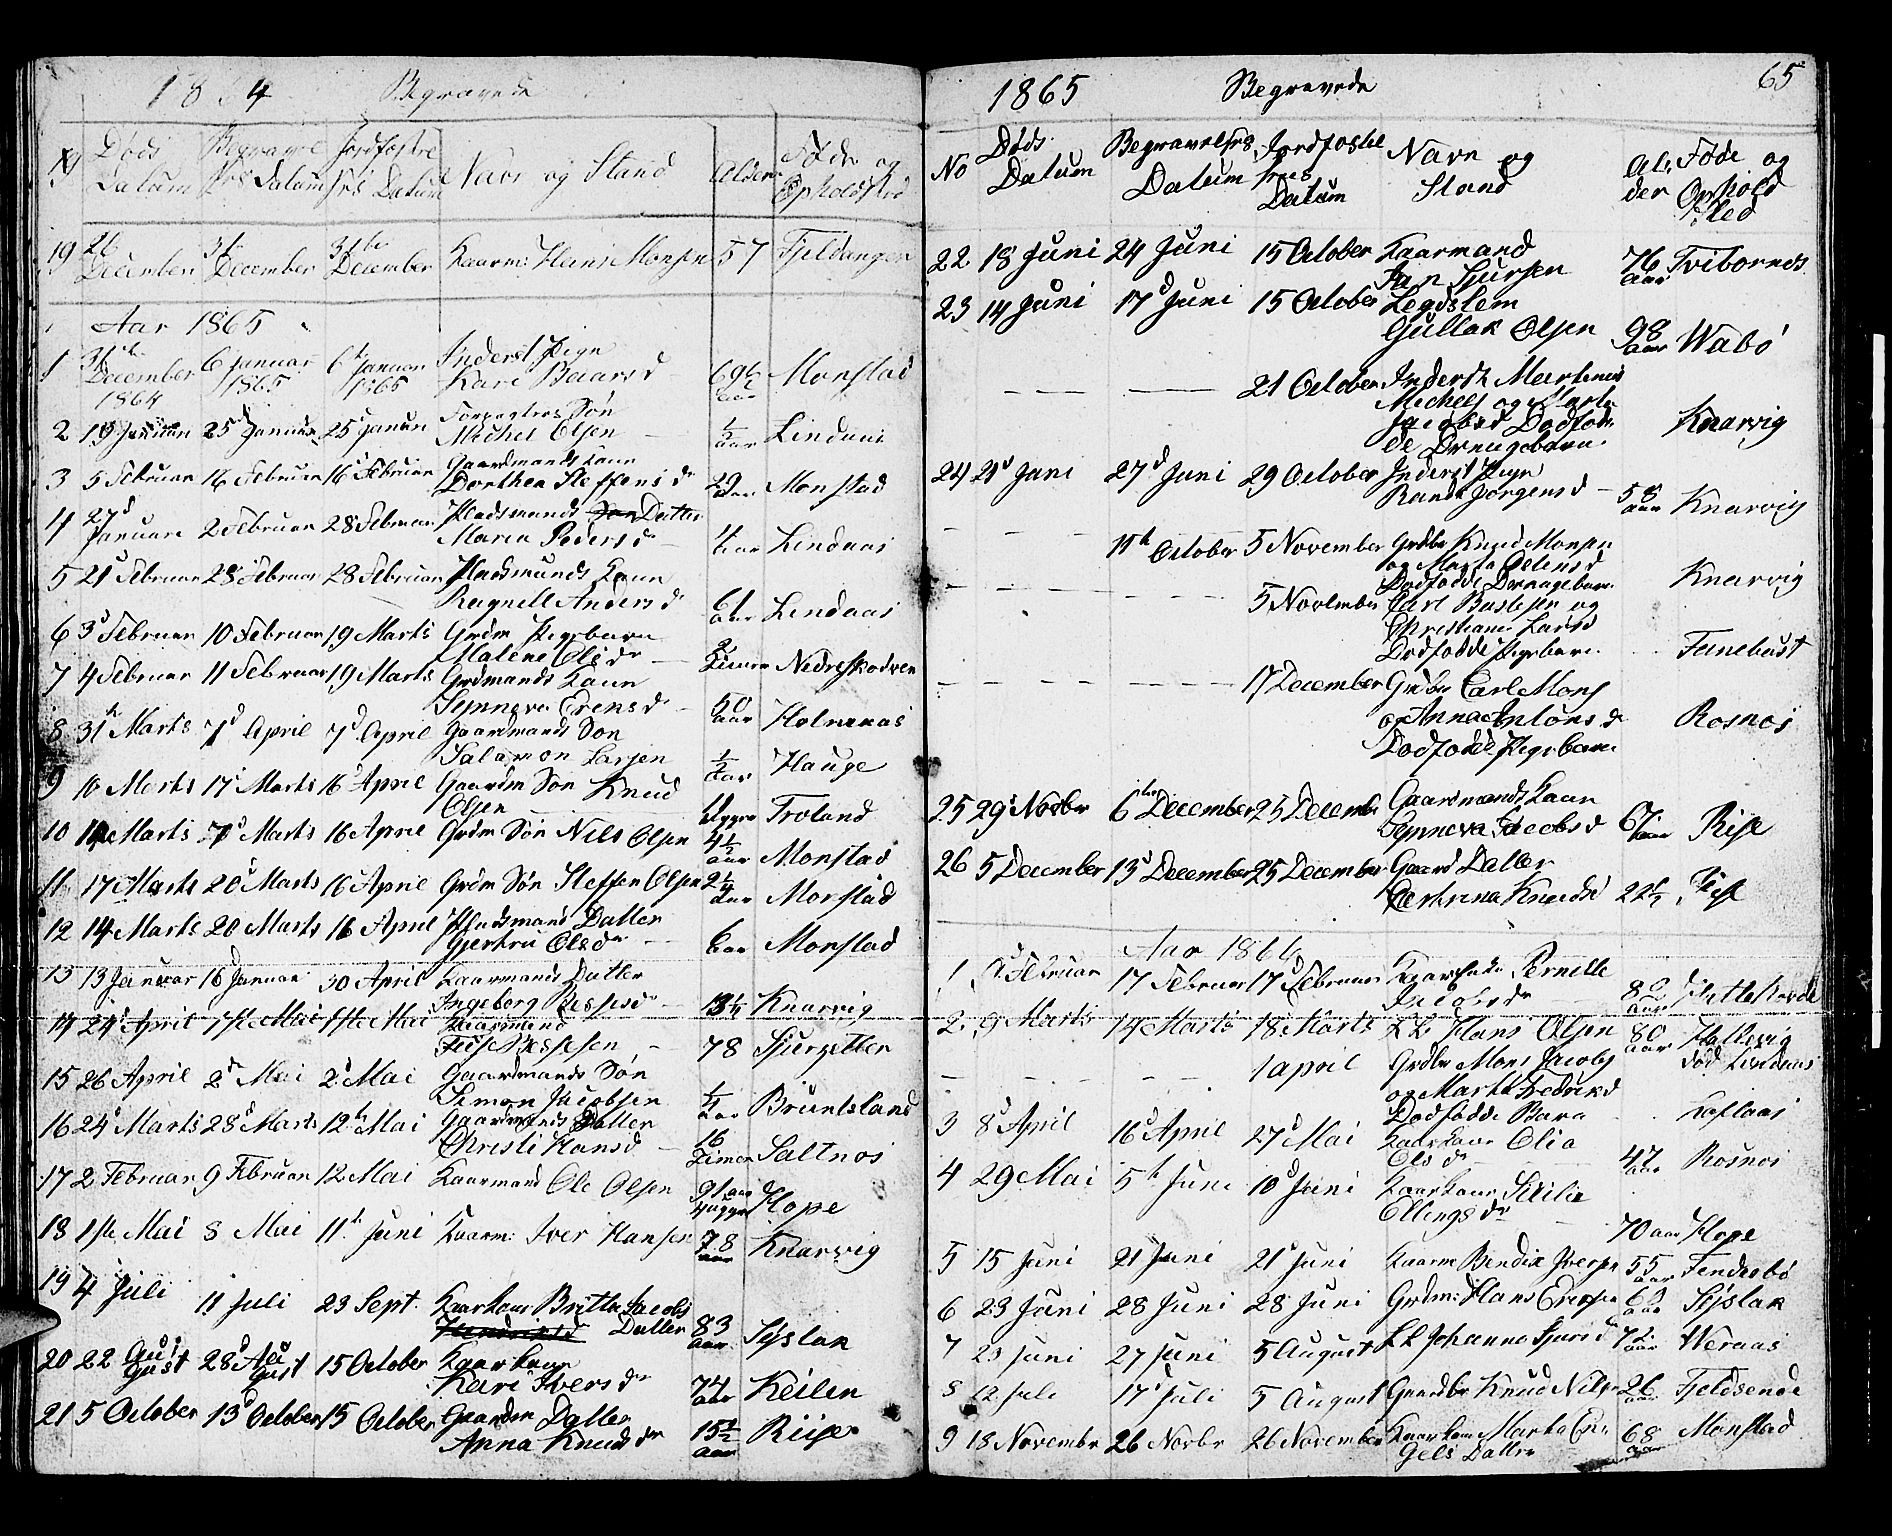 1864 Begravede
No Døds Datum Begravelses Datum Jordfæstelses Datum Navn og Stand Alder Føde og Opholdsted
19 26 December 31 December 31te December Kaarm: Heine Monsen 57 Fjeldanger
Aar 1865
1 31te December 1864 6 Januar 1865 6te Januar 1865 Inderst Pige
Kari Baarsd 69½ aar Monstad
2 19 Januar 25 Januar 25 Januar Forpagters Søn
Michel Olsen ½ aar Lindaas
3 5 Februar 16 Februar 16 Februar Gaardmands Kaan
Dorthea Steffens dr 29 aar Monstad
4 27d Januari 2 Februar 28 Februar Pladsmands Datter
Maria Peders dr 4 aar Lindaas
5 21 Februar 28 Februar 28 Februar Pladsmands Kaan
Ragnell Anders dr 61 aar Lindaas
6 3d Februar 10 Februar 19 Marts Grdm Pigebarn
Malene Ols dr Timer Nedreskodven
7 4 Februar 11 Februar 19 Marts Grdmands Kaan
Synneva Erens dr 50 aar Holmaas
8 31te Marts 7d April 7d April Gaardmands Søn
Salamon Larsen ½ aar Hauge
9 10 Marts 17 Marts 16 April Gaardm Søn Knud
Olsen Troland
10 Marts Marts 16 April Grdm Søn Nils Olsen 4½ aar Monstad
11 17 Marts 20d Marts 16 April Grdm Søn Steffen Olsen 2¼ aar Monstad
12 14 Marts 20 Marts 16 April Pladsmand Datter
Gjertru Ols dr 6 aar Monstad
13 13 Januar 16 Januar 30 April Kaarmands Datter
Ingeborg 13½ Knarvig
14 24 April 1ste Mai 1ste Mai Kaarmand
78 Sjurzetter
15 26 April 2d Mai 2d Mai Gaardmands Søn
Simon Jacobsen ¼ aar Bruntsland
16 24d Marts 28d Marts 12te Mai Gaardmands Datter
Christi Hansd 16 Timer Saltnes
17 2 Februar 9 Februar 12 Mai Kaarmand Ole Olsen 91 aar Hope
18 1ste Mai 8 Mai 11te Juni Kaarm: Iver Hansen 78 aar Knarvig
19 4 Juli 11 Juli 23 Sept. Kaarkone Britta Jacobs
Datter 83 aar Syslak
20 22 August 28d August 15 October Kaarkone
Kari Ivers dr 74 aar Keilen
21 5 October 13d October 15 October Gaardm Datter
Anna Knuds dr 15½ aar Riise
1865 Begravede 65
No Døds Datum Begravelses Datum Jordfæstelses Datum Navn og Stand Alder Føde og Opholdsted
22 18 Juni 24 Juni 15 October Kaarmand
Sjursen 76 aar Tvibornes
23 14 Juni 17d Juni 15 October Legdslem
Gullak Olsen 98 aar Wabø
21 October Inderst Martinus
Michels og Marta
Jacobsd Dødfødde
Drengebarn Knarvig
24 21d Juni 27d Juni 29 October Inderst Pige
Randi Jorgensd 58 aar Knarvig
11te October 5 November Grdbr Knud Monsen
og Marta
Dødfødde Drengebarn Knarvig
5 November Carl og
Christiane Larsd
Dødfødde Pigebarn Fanebust
17 December Grdbr Carl Mons
og Anna Antons dr
Dødfødde Pigebarn Rosnes
25 29 Novbr 6te December 25 December Gaardmands Kaan
Synneva Jacobsd 67 aar Rise
26 5 December 13d December 25 December Gaard Datter
Knudsd 22½ Rise
Aar 1866
1 Februar 17 Februar 17d Februar Pernelle
Jacobs dr 80 aar
2 9 Marts 14 Marts 18 Marts Hans Olsen 80 aar Hallevig
død Lindaas
1 April Grdbr Mons Jacobs
og Martha Fredriksd
Dødfødde Barn Loflaas
3 8d April 16d April 27d Mai Kaarkone Olia
Ols dr 47 aar Rosnes
4 29 Mai 5te Juni 10d Juni Kaarkone Sicilie
Ellings dr 70 aar Hope
5 15 Juni 21 Juni 21d Juni Kaarm Bendix Iversen 55 aar Fendebø
6 23 Juni 28 Juni 28 Juni Grdm: Hans aar Syslak
7 23 Juni 27 Juni 5 August Johanna Sjursd 72 aar Weraas
8 12 Juli 17d Juli 5 August Gaardbr Knud Nilsen 26 aar Fjeldsende
9 18 Novembr 26 Novbr 26 November Kaarkone Marta
Datter 68 aar Monstad